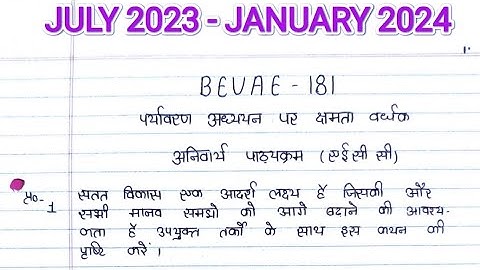 JULY 2023 - JANUARY 2024
1.
BEVAE - 181
पर्यावरण अध्ययन पर क्षमता वर्धक
अनिवार्य पाठ्यक्रम (एईसीसी)
प्र०-1 सतत विकास एक आदर्श लक्ष्य है जिसकी और
सभी मानव समाजो को आगे बढाने की आवश्य-
कता है उपयुक्त तर्कों के साथ इस कथन की
पुष्टि करें।